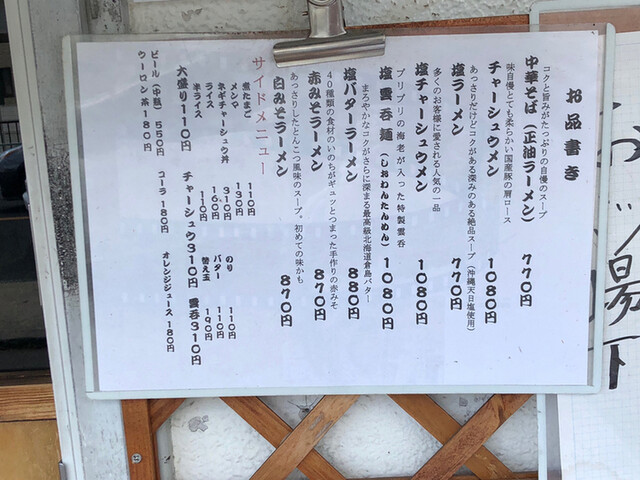 お品書き
コクと旨みがたっぷりの自慢のスープ
中華そば（正油ラーメン） 770円
味自慢とても柔らかい国産豚の肩ロース
チャーシュウメン 1080円
あっさりだけどコクがある深みのある絶品スープ（沖縄天日塩使用）
塩ラーメン 770円
多くのお客様に愛される人気の一品
塩チャーシュウメン 1080円
プリプリの海老が入った特製雲呑
塩雲呑麺（しおわんたんめん） 1080円
まろやかなコクがさらに深まる最高級北海道倉島バター
塩バターラーメン 880円
40種類の食材のいのちがギュッとつまった手作りの赤みそ
赤みそラーメン 870円
あっさりしたとんこつ風味のスープ。初めての味かも
白みそラーメン 870円
サイドメニュー
煮たまご 110円
メンマ 130円
ネギチャーシュウ丼 310円
ライス 160円
半ライス 110円
のり 110円
バター 110円
替え玉 190円
大盛り110円 チャーシュウ310円 雲呑310円
ビール（中瓶） 550円
ウーロン茶180円 コーラ180円 オレンジジュース180円